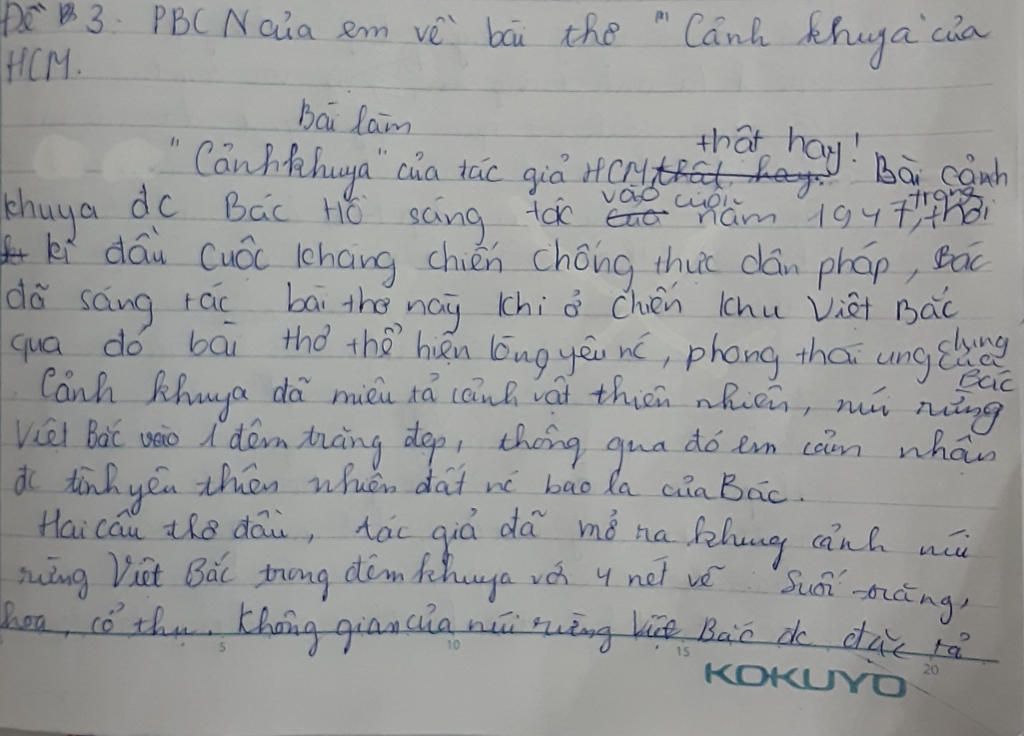 Đề B 3: PBCN của em về bài thơ "Cảnh khuya" của
HCM.
Bài làm
"Cảnh khuya" của tác giả HCM thật hay. thật hay! Bài cảnh
khuya đc Bác Hồ sáng tác vào cuối năm 1947, trong thời
kì đầu cuộc kháng chiến chống thực dân pháp, Bác
đã sáng tác bài thơ này khi ở chiến khu Việt Bắc
qua đó bài thơ thể hiện lòng yêu nc, phong thái ung dung của Bác
Cảnh khuya đã miêu tả cảnh vật thiên nhiên, núi rừng
Việt Bắc vào 1 đêm trăng đẹp, thông qua đó em cảm nhận
đc tình yêu thiên nhiên đất nc bao la của Bác.
Hai câu thơ đầu, tác giả đã mở ra khung cảnh núi
rừng Việt Bắc trong đêm khuya với 4 nét vẽ: Suối trăng,
hoa, cổ thụ. Không gian của núi rừng Việt Bắc đc đặc tả
5 10 15 20
KOKUYO